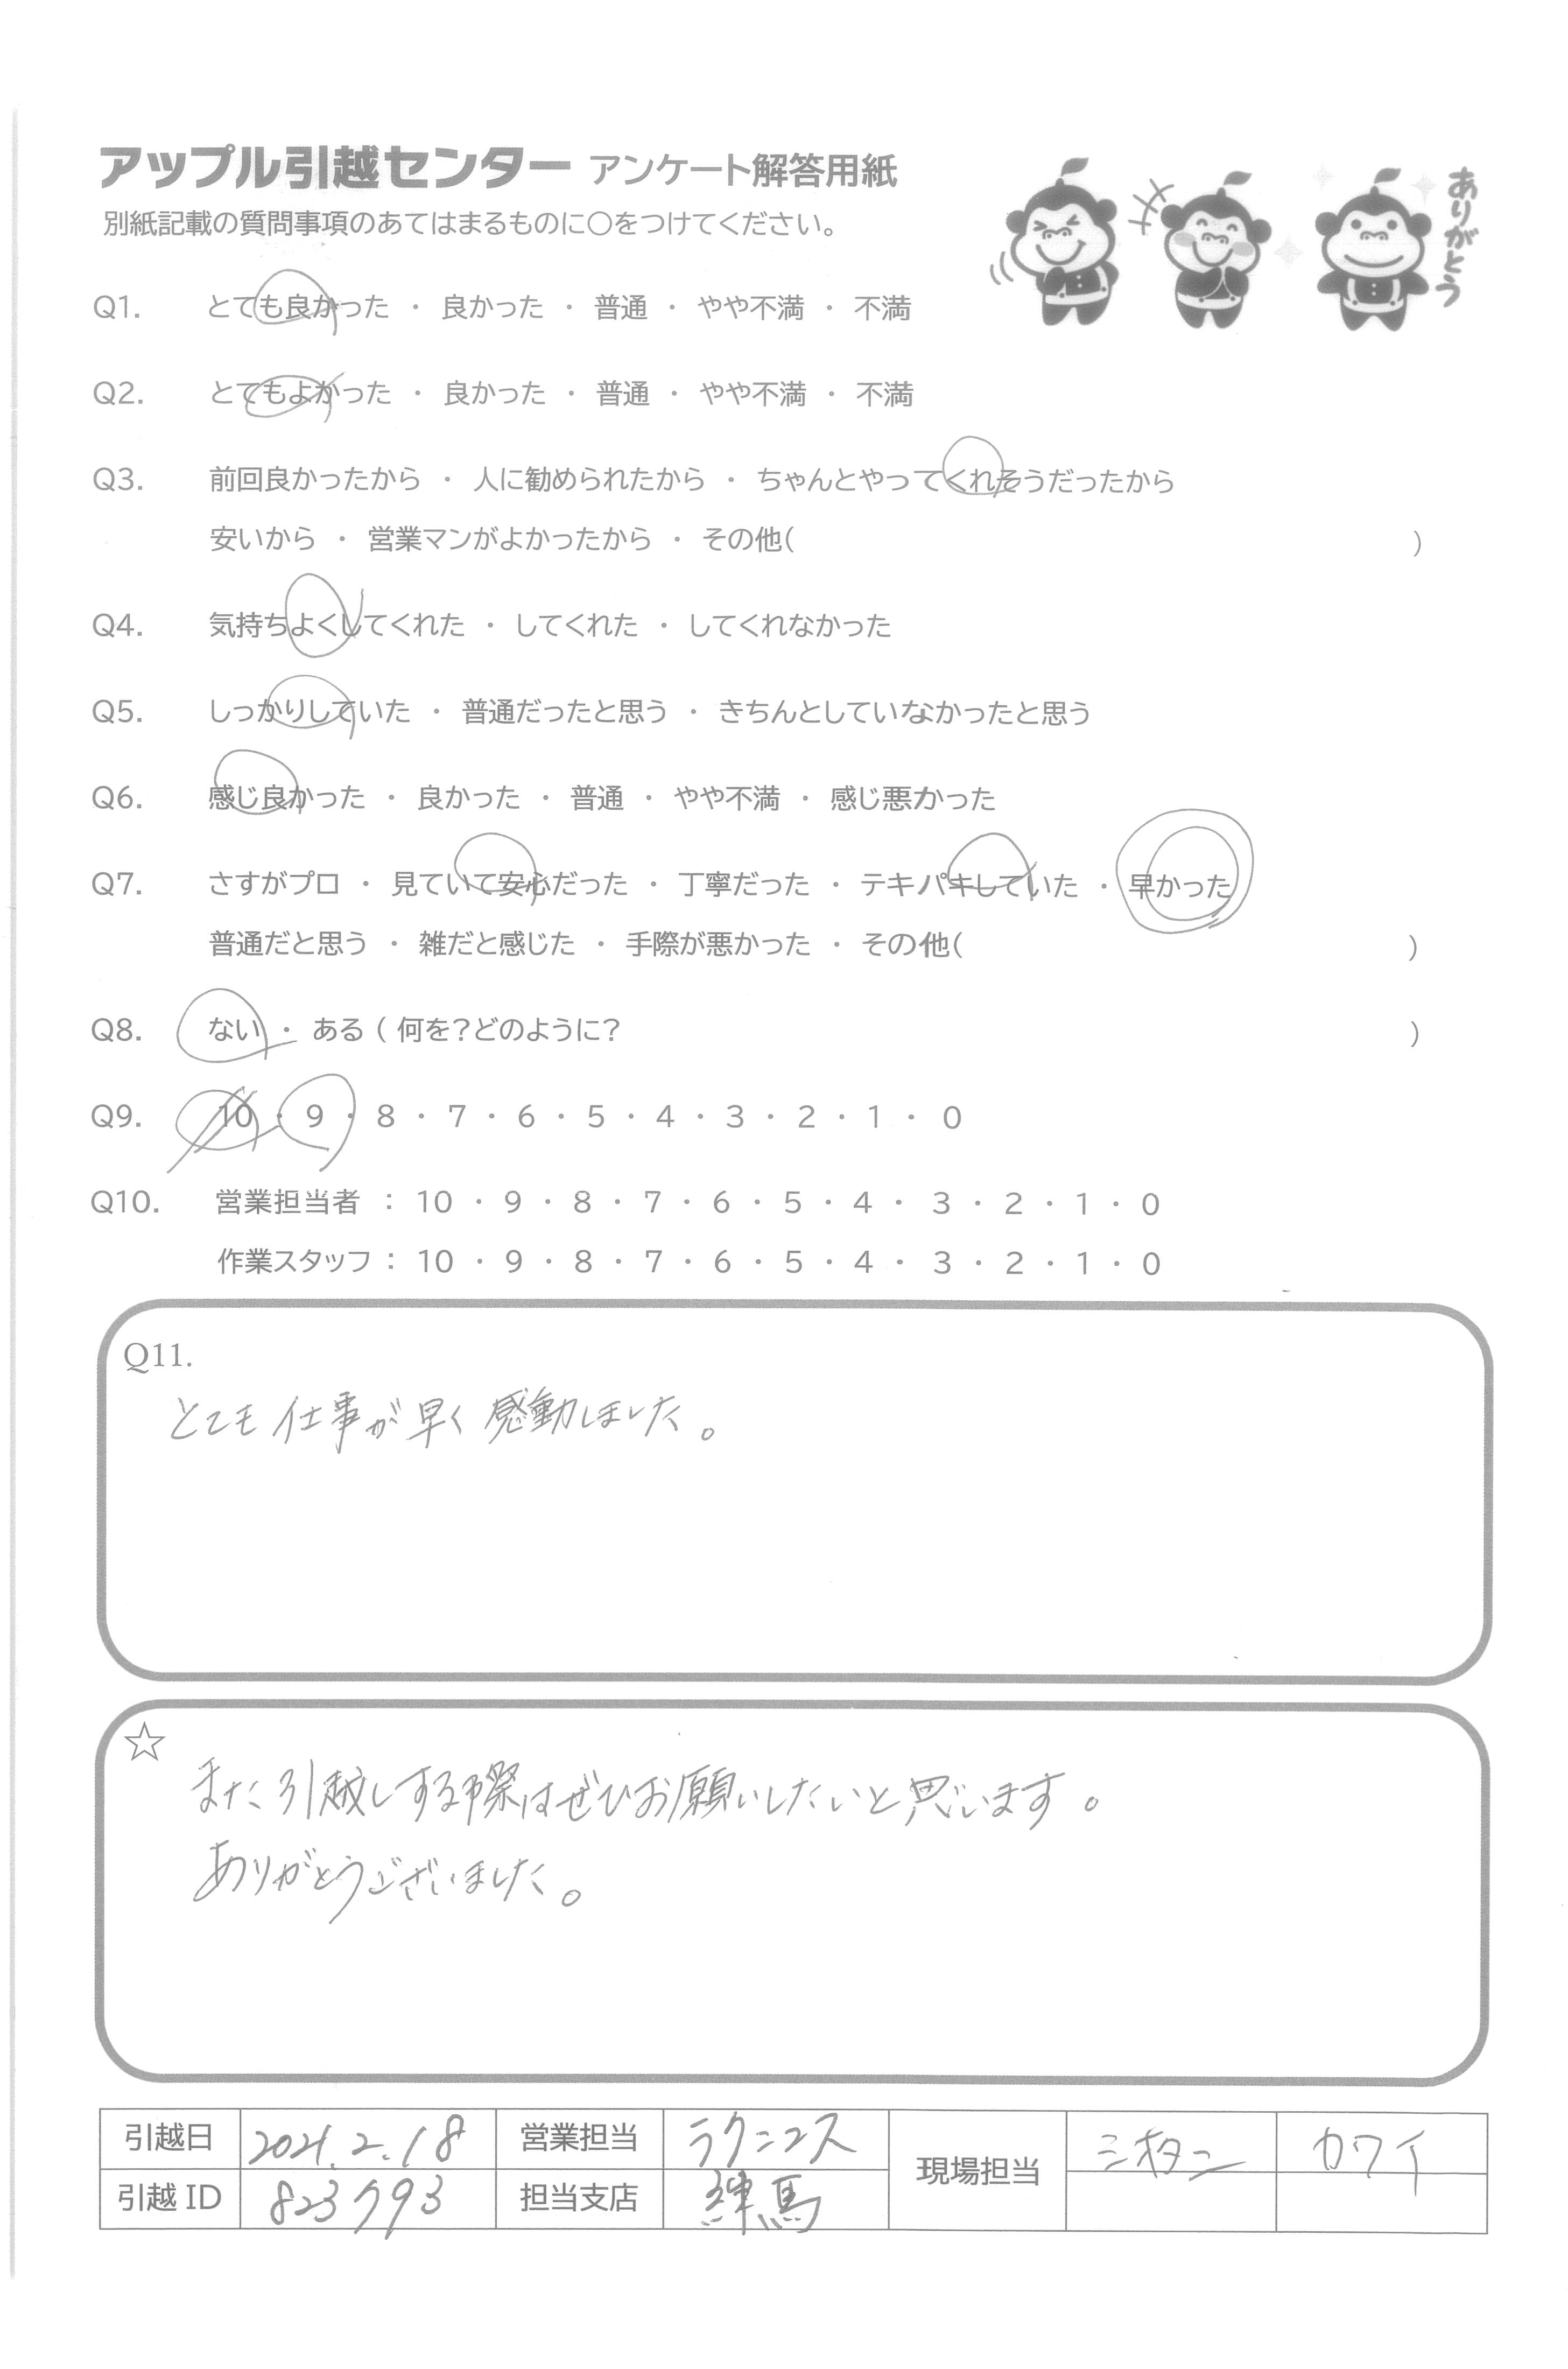 アップル引越センター アンケート解答用紙
別紙記載の質問事項のあてはまるものに○をつけてください。
ありがとう
Q1. とても良かった ・ 良かった ・ 普通 ・ やや不満 ・ 不満
Q2. とてもよかった ・ 良かった ・ 普通 ・ やや不満 ・ 不満
Q3. 前回良かったから ・ 人に勧められたから ・ ちゃんとやってくれそうだったから
安いから ・ 営業マンがよかったから ・ その他( )
Q4. 気持ちよくしてくれた ・ してくれた ・ してくれなかった
Q5. しっかりしていた ・ 普通だったと思う ・ きちんとしていなかったと思う
Q6. 感じ良かった ・ 良かった ・ 普通 ・ やや不満 ・ 感じ悪かった
Q7. さすがプロ ・ 見ていて安心だった ・ 丁寧だった ・ テキパキしていた ・ 早かった
普通だと思う ・ 雑だと感じた ・ 手際が悪かった ・ その他( )
Q8. ない ・ ある ( 何を?どのように? )
Q9. 10 ・ 9 ・ 8 ・ 7 ・ 6 ・ 5 ・ 4 ・ 3 ・ 2 ・ 1 ・ 0
Q10. 営業担当者 : 10 ・ 9 ・ 8 ・ 7 ・ 6 ・ 5 ・ 4 ・ 3 ・ 2 ・ 1 ・ 0
作業スタッフ : 10 ・ 9 ・ 8 ・ 7 ・ 6 ・ 5 ・ 4 ・ 3 ・ 2 ・ 1 ・ 0
Q11.
とても仕事が早く感動しました。
☆
また引越しする際はぜひお願いしたいと思います。
ありがとうございました。
引越日 2021.2.18 営業担当 ラクニコス 現場担当 カワイ
引越ID 823793 担当支店 練馬